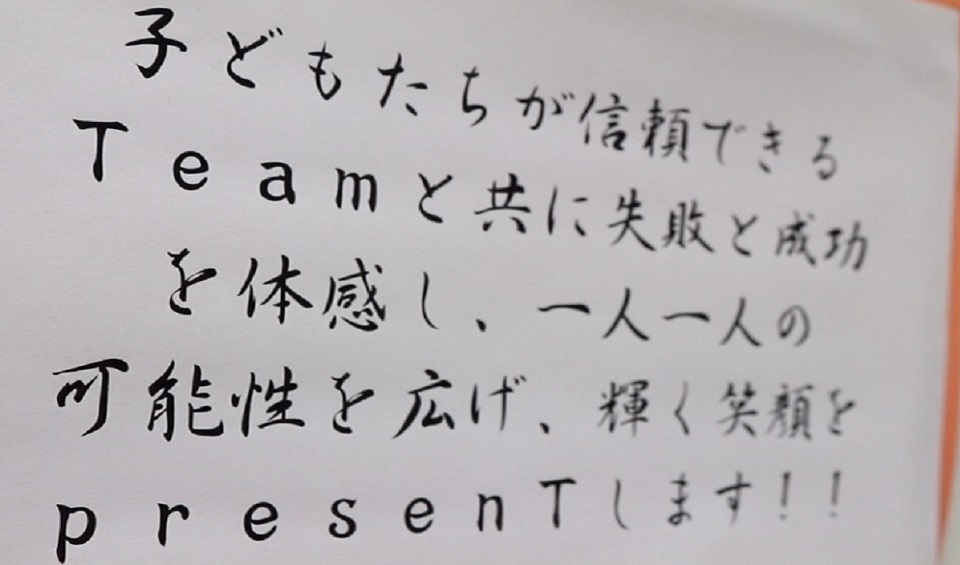 子どもたちが信頼できる
Teamと共に失敗と成功
を体感し、一人一人の
可能性を広げ、輝く笑顔を
presenTします!!